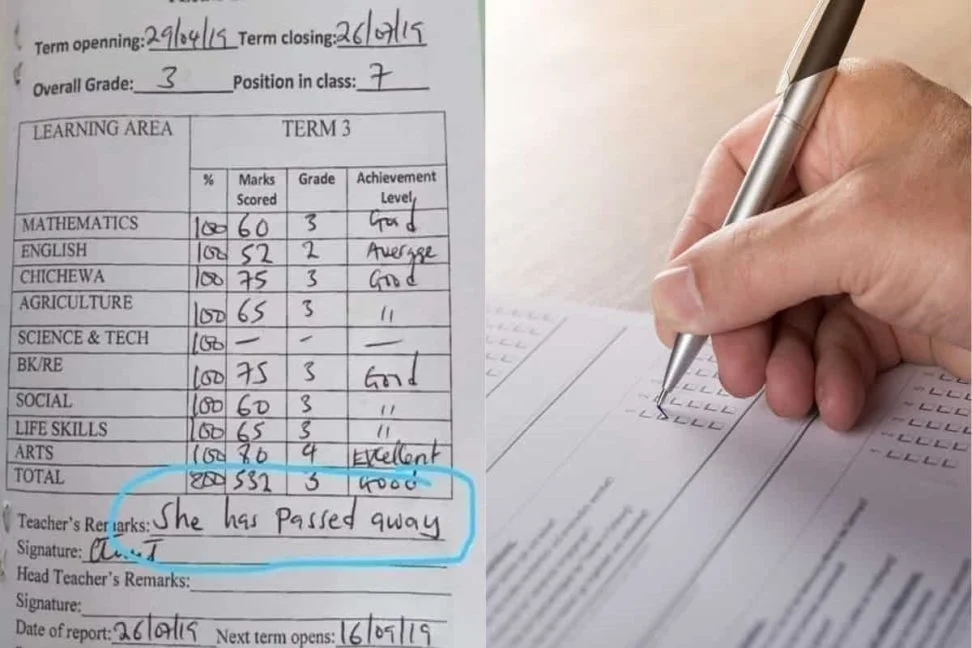 Term openning: 29/04/19 Term closing: 26/07/19
Overall Grade: 3 Position in class: 7
LEARNING AREA TERM 3
% Marks Scored Grade Achievement Level
MATHEMATICS 100 60 3 Good
ENGLISH 100 52 2 Average
CHICHEWA 100 75 3 Good
AGRICULTURE 100 65 3 "
SCIENCE & TECH 100 — - —
BK/RE 100 75 3 Good
SOCIAL 100 60 3 "
LIFE SKILLS 100 65 3 "
ARTS 100 80 4 Excellent
TOTAL 800 532 3 Good
Teacher's Remarks: She has Passed away
Signature:
Head Teacher's Remarks:
Signature:
Date of report: 26/07/19 Next term opens: 16/09/19